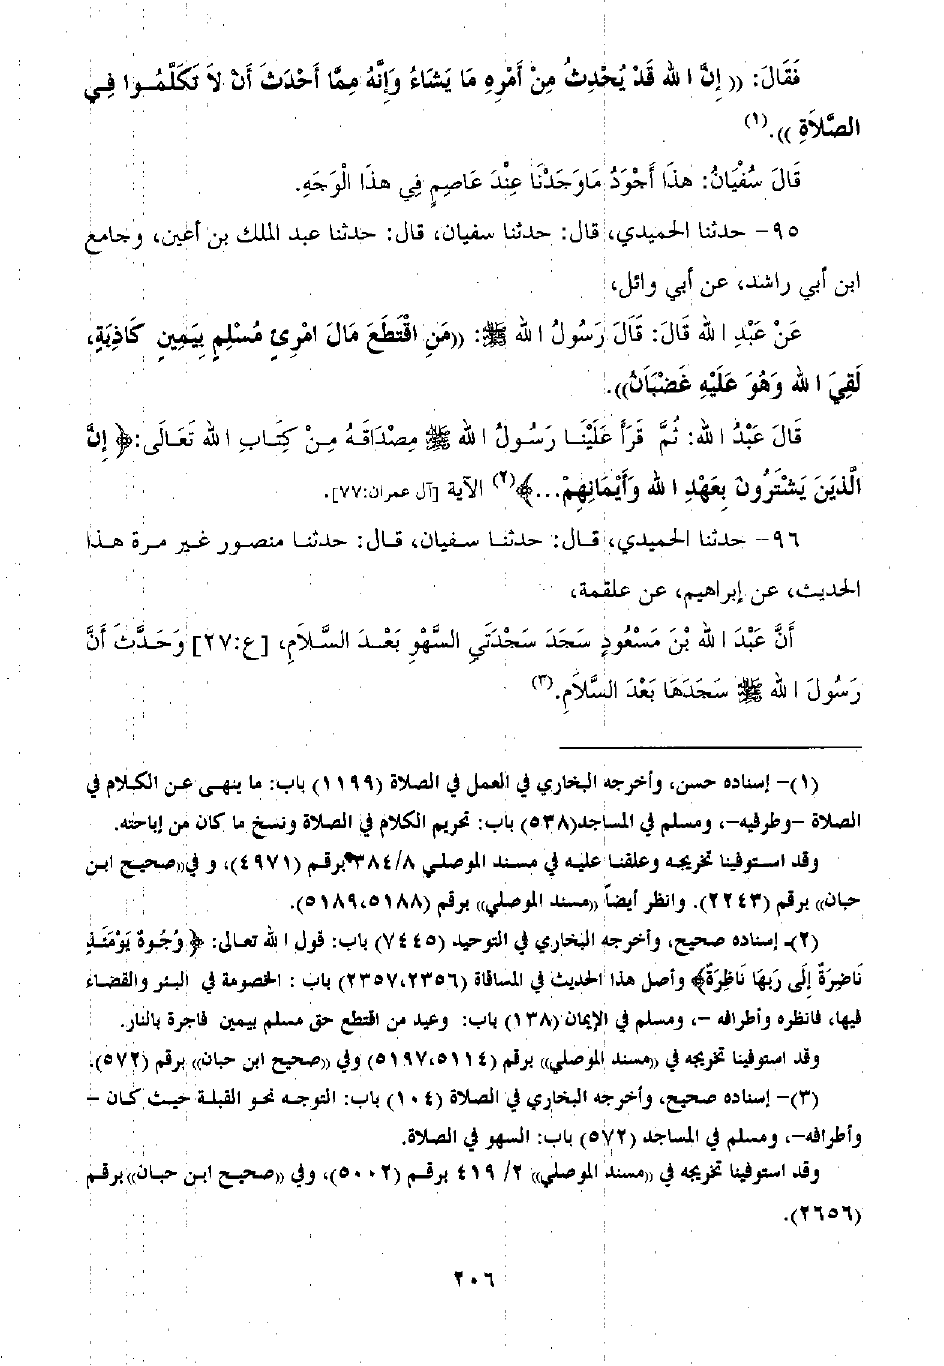 فَقَالَ: (( إِنَّ اللهَ قَدْ يُحْدِثُ مِنْ أَمْرِهِ مَا يَشَاءُ وَإِنَّهُ مِمَّا أَحْدَثَ أَنْ لاَ تَكَلَّمُوا فِي
الصَّلاَةِ )).(١)
قَالَ سُفْيَانُ: هذَا أَجْوَدُ مَاوَجَدْنَا عِنْدَ عَاصِمٍ فِي هذَا الْوَجَهِ.
٩٥- حدثنا الحميدي، قال: حدثنا سفيان، قال: حدثنا عبد الملك بن أعين، وجامع
ابن أبي راشد، عن أبي وائل،
عَنْ عَبْدِ اللهِ قَالَ: قَالَ رَسُولُ اللهِ ﷺ: ((مَنِ اقْتَطَعَ مَالَ امْرِئٍ مُسْلِمٍ بِيَمِينٍ كَاذِبَةٍ،
لَقِيَ اللهَ وَهُوَ عَلَيْهِ غَضْبَانُ)).
قَالَ عَبْدُ اللهِ: ثُمَّ قَرَأَ عَلَيْنَا رَسُولُ اللهِ ﷺ مِصْدَاقَهُ مِنْ كِتَابِ اللهِ تَعَالَى:﴿ إِنَّ
الَّذِينَ يَشْتَرُونَ بِعَهْدِ اللهِ وَأَيْمَانِهِمْ...﴾(٢) الآية [آل عمران:٧٧].
٩٦- حدثنا الحميدي، قال: حدثنا سفيان، قال: حدثنا منصور غير مرة هذا
الحديث، عن إبراهيم، عن علقمة،
أَنَّ عَبْدَ اللهِ بْنَ مَسْعُودٍ سَجَدَ سَجْدَتَيِ السَّهْوِ بَعْدَ السَّلاَمِ، [ع:٢٧] وَحَدَّثَ أَنَّ
رَسُولَ اللهِ ﷺ سَجَدَهَا بَعْدَ السَّلاَمِ.(٣)
(١)- إسناده حسن، وأخرجه البخاري في العمل في الصلاة (١١٩٩) باب: ما ينهى عن الكلام في
الصلاة -وطرفيه-، ومسلم في المساجد(٥٣٨) باب: تحريم الكلام في الصلاة ونسخ ما كان من إباحته.
وقد استوفينا تخريجه وعلقنا عليه في مسند الموصلي ٣٨٤/٨ برقم (٤٩٧١)، و في((صحيح ابن
حبان)) برقم (٢٢٤٣). وانظر أيضاً ((مسند الموصلي)) برقم (٥١٨٩،٥١٨٨).
(٢)- إسناده صحيح، وأخرجه البخاري في التوحيد (٧٤٤٥) باب: قول الله تعالى: ﴿ وُجُوهٌ يَوْمَئِذٍ
نَاضِرَةٌ إِلَى رَبِّهَا نَاظِرَةٌ﴾ وأصل هذا الحديث في المساقاة (٢٣٥٧،٢٣٥٦) باب : الخصومة في البئر والقضاء
فيها، فانظره وأطرافه -، ومسلم في الإيمان (١٣٨) باب: وعيد من اقتطع حق مسلم بيمين فاجرة بالنار.
وقد استوفينا تخريجه في ((مسند الموصلي)) برقم (٥١٩٧،٥١١٤) وفي ((صحيح ابن حبان)) برقم (٥٧٢).
(٣)- إسناده صحيح، وأخرجه البخاري في الصلاة (١٠٤) باب: التوجه نحو القبلة حيث كان -
وأطرافه-، ومسلم في المساجد (٥٧٢) باب: السهو في الصلاة.
وقد استوفينا تخريجه في ((مسند الموصلي)) ٢/ ٤١٩ برقم (٥٠٠٢)، وفي ((صحيح ابن حبان))برقم
(٢٦٥٦).
٢٠٦